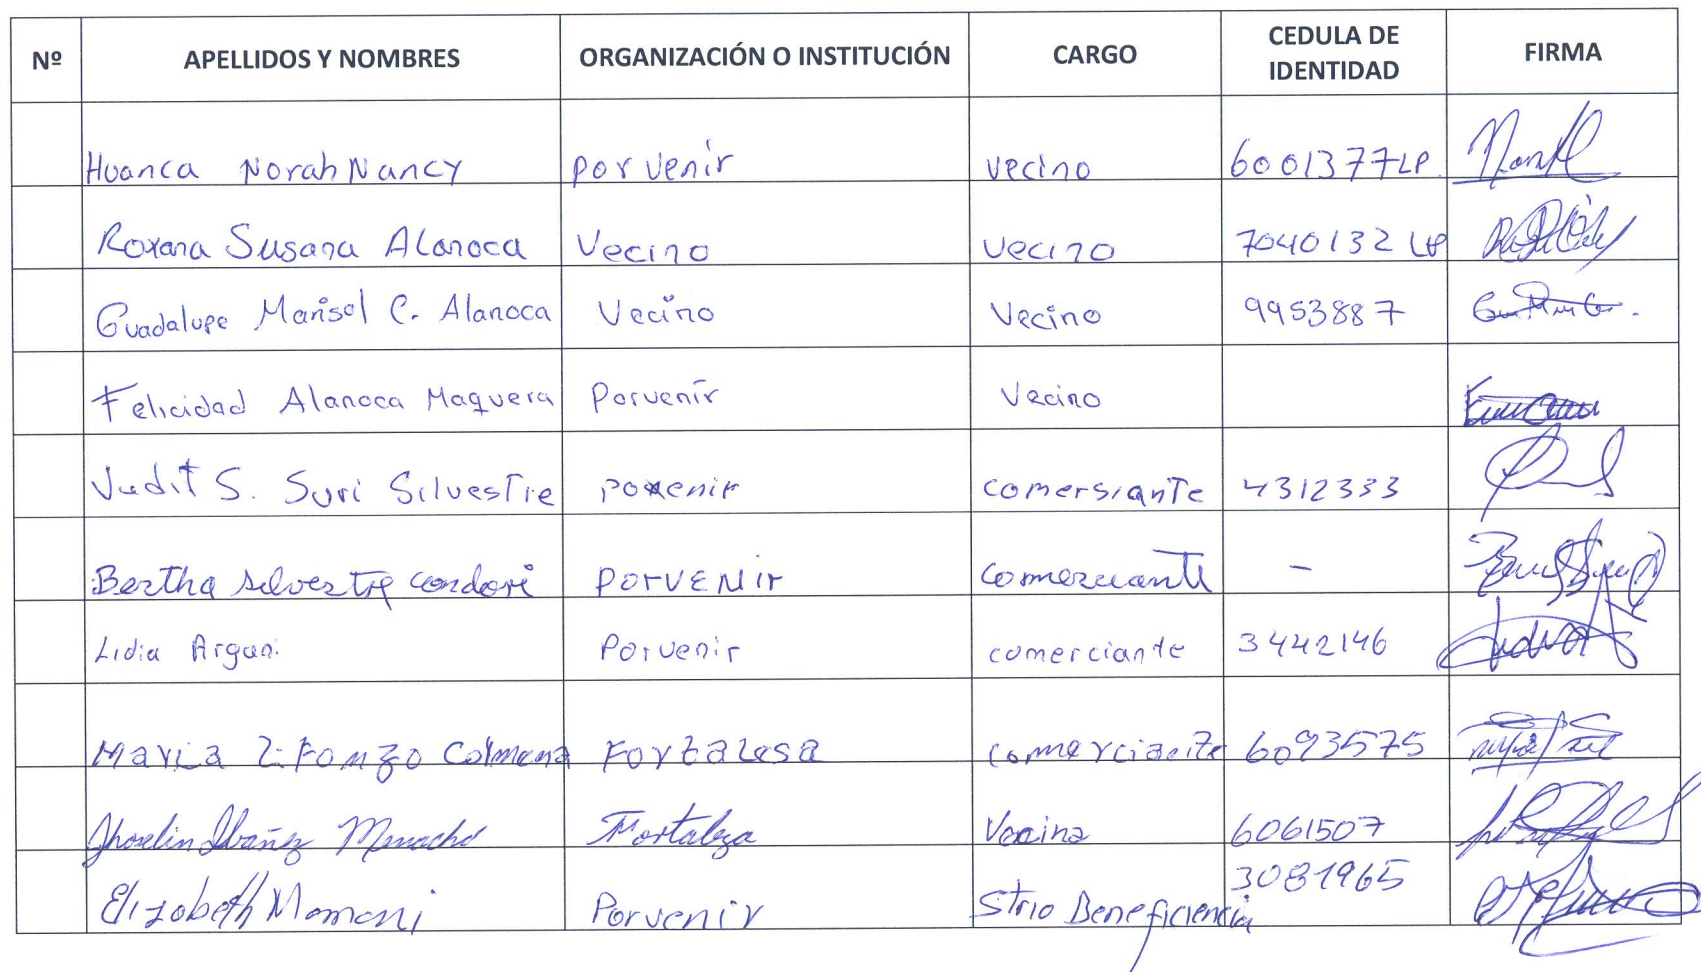 Nº APELLIDOS Y NOMBRES ORGANIZACIÓN O INSTITUCIÓN CARGO CEDULA DE IDENTIDAD FIRMA
Huanca Norah Nancy Por venir vecino 6001377 LP.
Roxana Susana Alanoca Vecino vecino 7040132 LP
Guadalupe Marisol C. Alanoca Vecino Vecino 9953887
Felicidad Alanoca Maquera Porvenir Vecino
Judit S. Suri Silvestre porvenir comersiante 4312333
Bertha Silvestre condori PorVENir comerciante -
Lidia Argani Porvenir comerciante 3442146
Maria Z. Fonzo Colmena Fortalesa comerciante 6093575
Jhoselin Ibañez Menacho Fortaleza Vecina 6061507
Elizabeth Mamani Porvenir Strio Beneficiencia 3081965